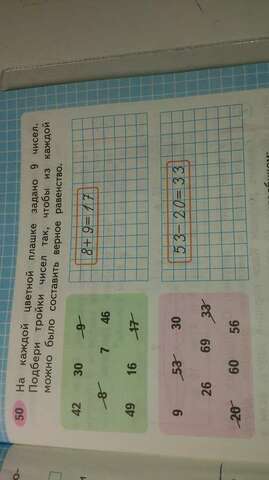 50 На каждой цветной плашке задано 9 чисел.
Подбери тройки чисел так, чтобы из каждой
можно было составить верное равенство.
42 30 9
8 7 46
49 16 17
8+9=17
9 53 30
26 69 33
20 60 56
53-20=33